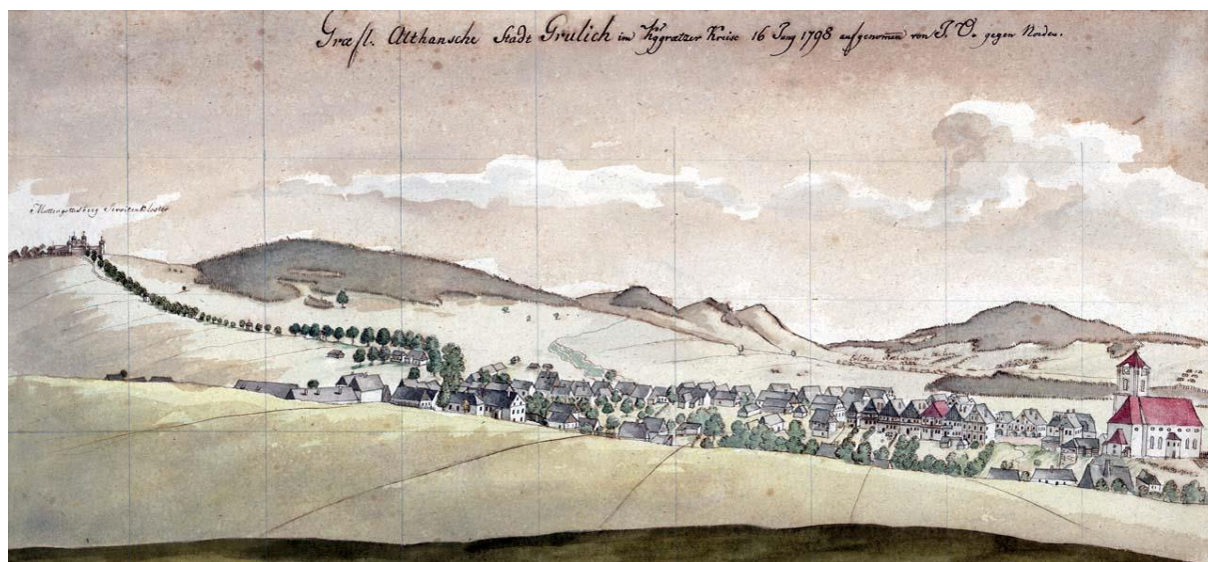 Græfl. Althansche Stadt Grulich im Kggrætzer Kreise 16 Juny 1798 aufgenomen von J. V. gegen Norden.
Muttergottesberg Servitenkloster